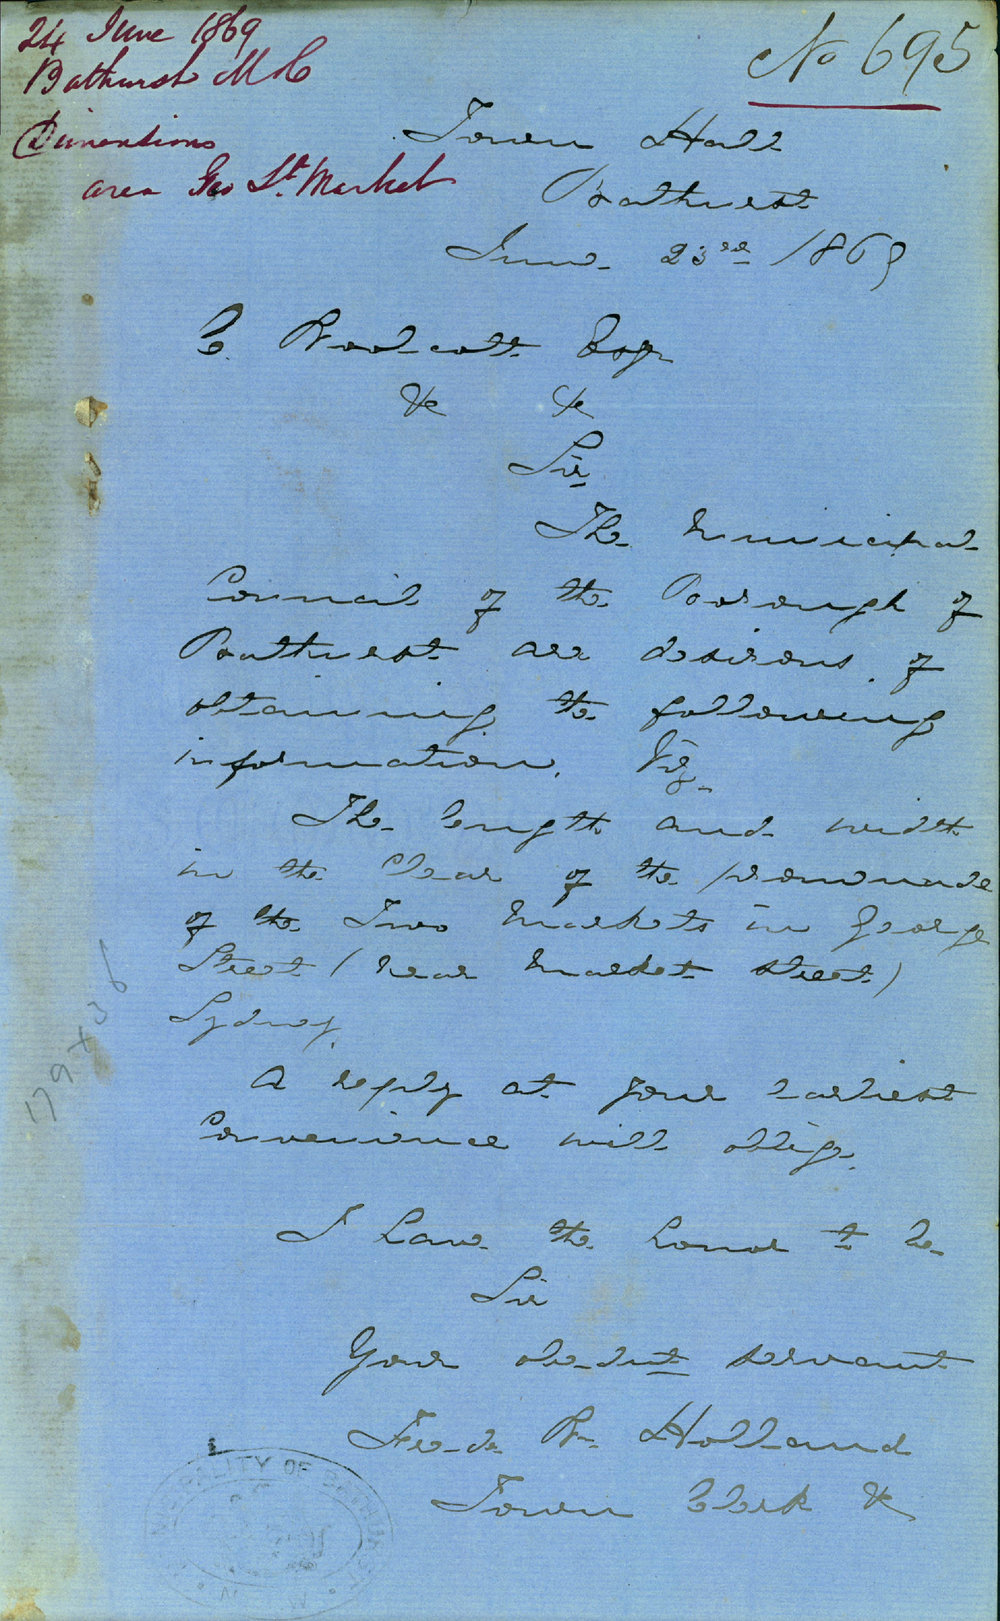 24 June 1869
Bathurst M C
Dimentions
area Geo St. Market
No 695
Town Hall
Bathurst
June 23rd 1869
C. Woolcott Esqr
&c &c
Sir
The Municipal
Council of the Borough of
Bathurst are desirous of
obtaining the following
information, Viz.
The length and width
in the Clear of the promenade
of the Two Markets in George
Street (near Market Street)
Sydney.
A reply at your earliest
Convenience will oblige.
I have the honor to be
Sir
Your obedient servant
Holland
Town Clerk &c
179 x 36
MUNICIPALITY OF BATHURST
N. S. W.